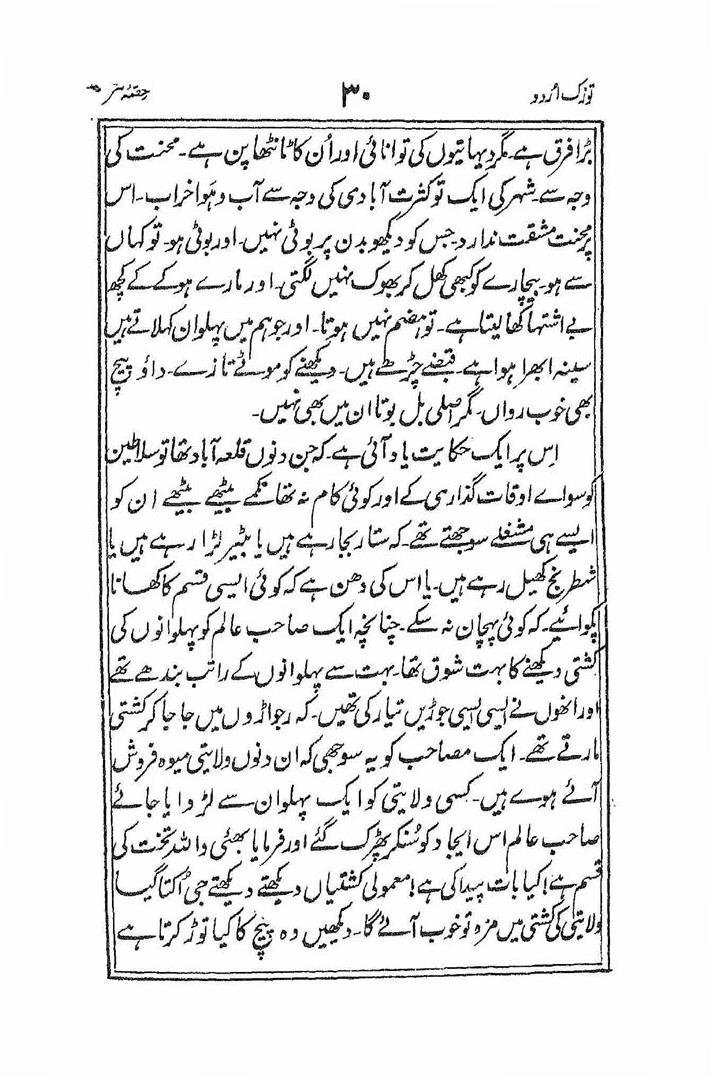 توزک اُردو ۳۰ حصّہ نثر
بڑا فرق ہے۔ مگر دیہاتیوں کی توانائی اور اُن کا ٹانٹھا پن ہے۔ محنت کی
وجہ سے۔ شہر کی ایک تو کثرت آبادی کی وجہ سے آب و ہَوا خراب۔ اس
پر محنت مشقت ندارد۔ جس کو دیکھو بدن پر بوٹی نہیں۔ اور بوٹی ہو۔ تو کہاں
سے ہو۔ بیچارے کو کبھی کھل کر بھوک نہیں لگتی۔ اور مارے ہوکے کے کچھ
بے اشتہا کھا لیتا ہے۔ تو ہضم نہیں ہوتا۔ اور جو ہم میں پہلوان کہلاتے ہیں
سینہ ابھرا ہوا ہے۔ قبضے چڑھے ہیں۔ دیکھنے کو موٹے تازے۔ داؤ پیچ
بھی خوب رواں۔ مگر اصلی بل بوتا ان میں بھی نہیں۔
اِس پر ایک حکایت یاد آئی ہے۔ کہ جن دنوں قلعہ آباد تھا تو سلاطین
کو سواے اوقات گذاری کے اور کوئی کام نہ تھا نکمے بیٹھے بیٹھے ان کو
ایسے ہی مشغلے سوجھتے تھے۔ کہ ستار بجا رہے ہیں یا بٹیر لڑا رہے ہیں یا
شطرنج کھیل رہے ہیں۔ یا اس کی دھن ہے کہ کوئی ایسی قسم کا کھانا
پکوائیے۔ کہ کوئی پہچان نہ سکے۔ چنانچہ ایک صاحب عالم کو پہلوانوں کی
کشتی دیکھنے کا بہت شوق تھا۔ بہت سے پہلوانوں کے راتب بندھے تھے
اور انھوں نے ایسی ایسی جوڑیں تیار کی تھیں۔ کہ رجواڑوں میں جا جا کر کشتی
مارتے تھے۔ ایک مصاحب کو یہ سوجھی کہ ان دنوں ولایتی میوہ فروش
آئے ہوے ہیں۔ کسی ولایتی کو ایک پہلوان سے لڑوایا جائے
صاحب عالم اس ایجاد کو سُنکر پھڑک گئے اور فرمایا بھئی واللہ تخت کی
قسم ہے! کیا بات پیدا کی ہے! معمولی کشتیاں دیکھتے دیکھتے جی اُکتا گیا
ولایتی کی کشتی میں مزہ تو خوب آئے گا۔ دیکھیں وہ پیچ کا کیا توڑ کرتا ہے